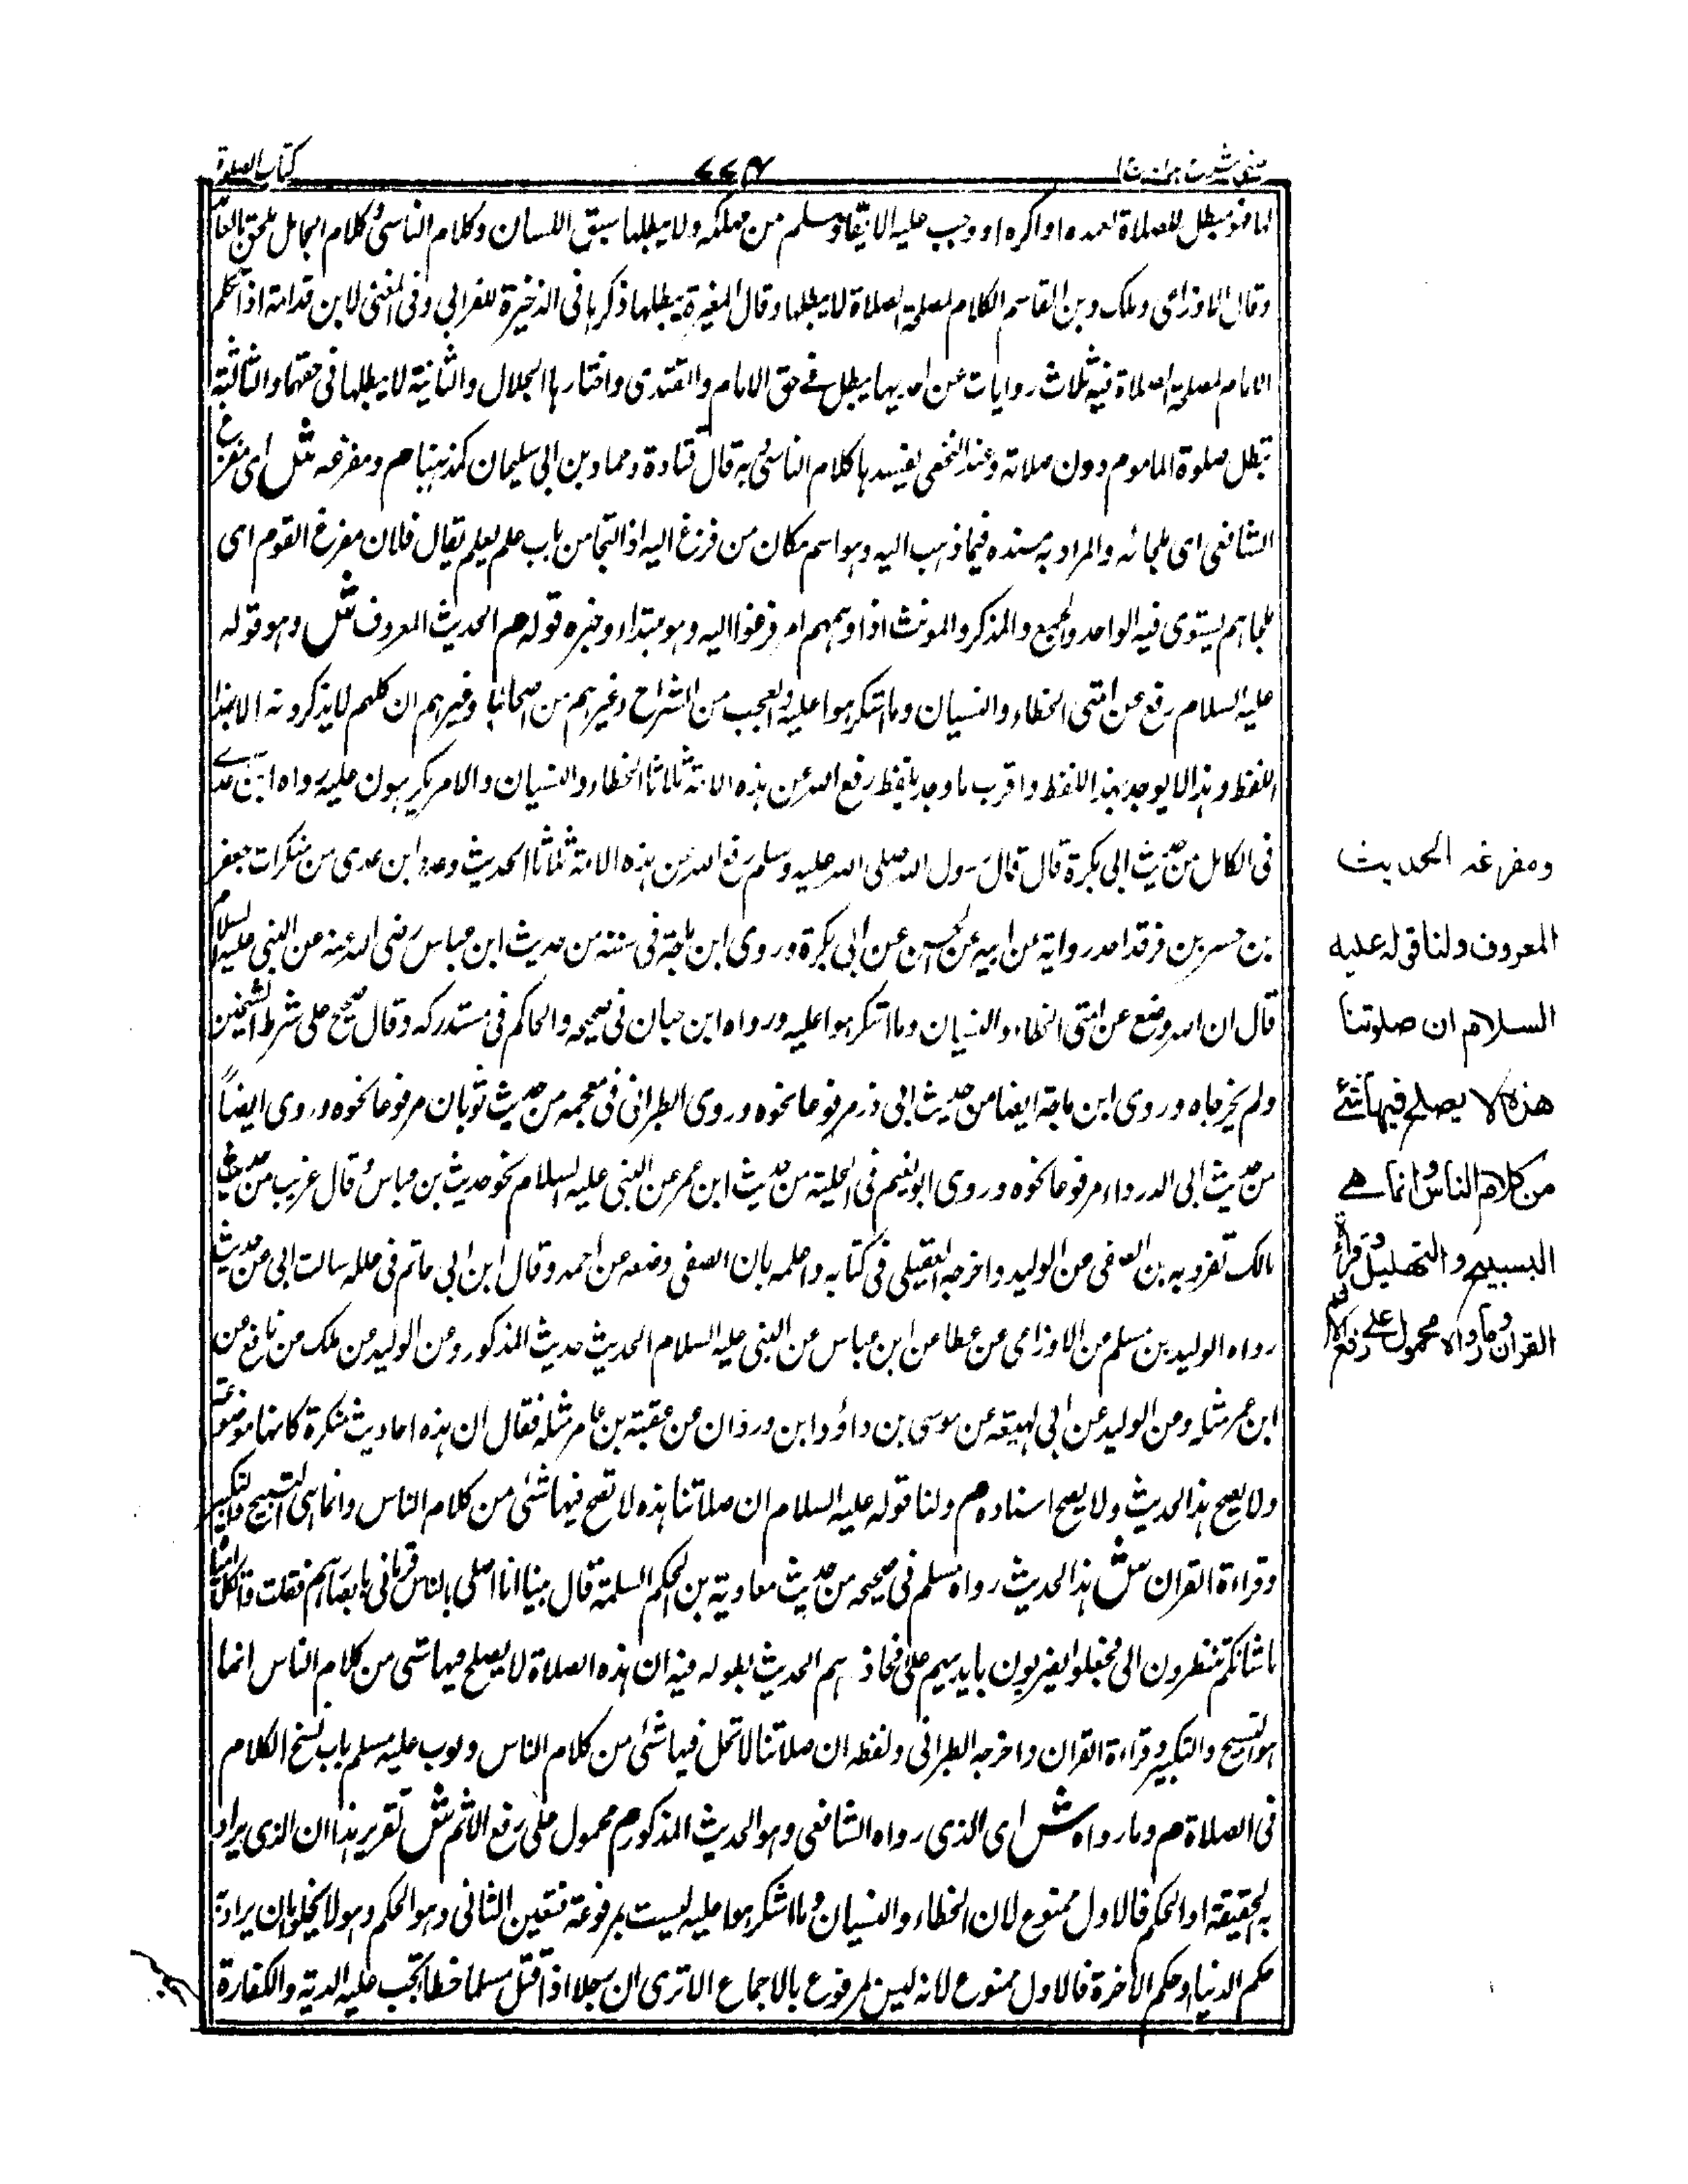 كتاب الصلوة
٧٧٤
عينى شرح هدايه ج ا
لها فهو مبطل للصلاة تعمده او اكره او وجب عليه لانقاذ مسلم من مهلكة ولا يبطلها سبق اللسان وكلام الناسى وكلام الجاهل ملحق بالعامد
وقال الاوزاعى وملك وبن القاسم الكلام لمصلحة الصلاة لا يبطلها وقال المغيرة يبطلها ذكرها فى الذخيرة للقرافى وفى المغنى لابن قدامة اذا تكلم
الامام لمصلحة الصلاة فيه ثلاث روايات عن احديها يبطل فى حق الامام والمقتدى واختارها الخلال والثانية لا يبطلها فى حقهما والثالثة
تبطل صلوة الماموم دون صلاته وعند النخعى يفسدها كلام الناسى وبه قال قتادة وحماد بن ابى سليمان كمذهبنا م ومفزعه ش اى مفزع
الشافعى اى ملجائه والمراد به مسنده فيما ذهب اليه وهو اسم مكان من فزع اليه اذا التجا من باب علم يعلم يقال فلان مفزع القوم اى
ملجاهم يستوى فيه الواحد والجمع والمذكر والمونث اذا دهمهم امر فزعوا اليه وهو مبتداء وخبره قوله م الحديث المعروف ش وهو قوله
عليه السلام رفع عن امتى الخطاء والنسيان وما استكرهوا عليه والعجب من الشراح وغيرهم من اصحابنا وغيرهم ان كلهم لا يذكرونه الا بهذا
اللفظ وهذا لا يوجد بهذا اللفظ واقرب ما وجد بلفظ رفع الله عن هذه الامة ثلاثا الخطاء والنسيان والامر يكرهون عليه رواه ابن عدى
فى الكامل من حديث ابى بكرة قال قال رسول الله صلى الله عليه وسلم رفع الله عن هذه الامة ثلاثا الحديث وعده ابن عدى من منكرات جعفر
بن جسر بن فرقد احد رواية عن ابيه عن الحسن عن ابى بكرة وروى ابن ماجة فى سننه من حديث ابن عباس رضى الله عنه عن النبى عليه السلام
قال ان الله وضع عن امتى الخطاء والنسيان وما استكرهوا عليه ورواه ابن حبان فى صحيحه والحاكم فى مستدركه وقال صحيح على شرط الشيخين
ولم يخرجاه وروى ابن ماجة ايضا من حديث ابى ذر مرفوعا نحوه وروى الطبرانى فى معجمه من حديث ثوبان مرفوعا نحوه وروى ايضاً
من حديث ابى الدرداء مرفوعا نحوه وروى ابو نعيم فى الحلية من حديث ابن عمر عن النبى عليه السلام نحو حديث بن عباس وقال غريب من حديث
مالك تفرد به بن المصفى عن الوليد واخرجه العقيلى فى كتابه واعله بابن المصفى وضعه عن احمد وقال ابن ابى حاتم فى علله سالت ابى عن حديث
رواه الوليد بن مسلم عن الاوزاعى عن عطا عن ابن عباس عن النبى عليه السلام الحديث حديث المذكور وعن الوليد عن ملك عن نافع عن
ابن عمر مثله وعن الوليد عن ابى لهيعة عن موسى بن داؤد ابن وردان عن عقبة بن عامر مثله فقال ان هذه احاديث منكرة كانها موضوعة
ولا يصح هذا الحديث ولا يصح اسناده م ولنا قوله عليه السلام ان صلاتنا هذه لا تصح فيها شئى من كلام الناس وانما هى التسبيح والتكبير
وقراءة القران ش هذا الحديث رواه مسلم فى صحيحه من حديث معاوية بن الحكم السلمة قال بينا انا اصلى بالناس فرمانى بابصارهم فقلت واثكل امياه
ما شانكم تنظرون الى فجعلوا يضربون بايديهم على افخاذهم الحديث بطوله فيه ان هذه الصلاة لا يصلح فيها شى من كلام الناس انما
هو التسبيح والتكبير وقراءة القران واخرجه الطبرانى ولفظه ان صلاتنا لا تحل فيها شئى من كلام الناس وبوب عليه مسلم باب نسخ الكلام
فى الصلاة م وما رواه ش اى الذى رواه الشافعى وهو الحديث المذكور م محمول على رفع الاثم ش تقرير هذا ان الذى يراد
به الحقيقة او الحكم فالاول ممنوع لان الخطاء والنسيان وما استكرهوا عليه ليست بمرفوعة فتعين الثانى وهو الحكم وهو لا يخلو بان يراد به
حكم الدنيا وحكم الاخرة فالاول ممنوع لانه ليس بمرفوع بالاجماع الا ترى ان رجلا اذا قتل مسلما خطا تجب عليه الدية والكفارة
ومفزعه الحديث
المعروف ولنا قوله عليه
السلام ان صلوتنا
هذه لا يصلح فيها شئے
من كلام الناس وانما هے
التسبيح والتهليل وقراءة
القران وما رواه محمول على رفع الاثم